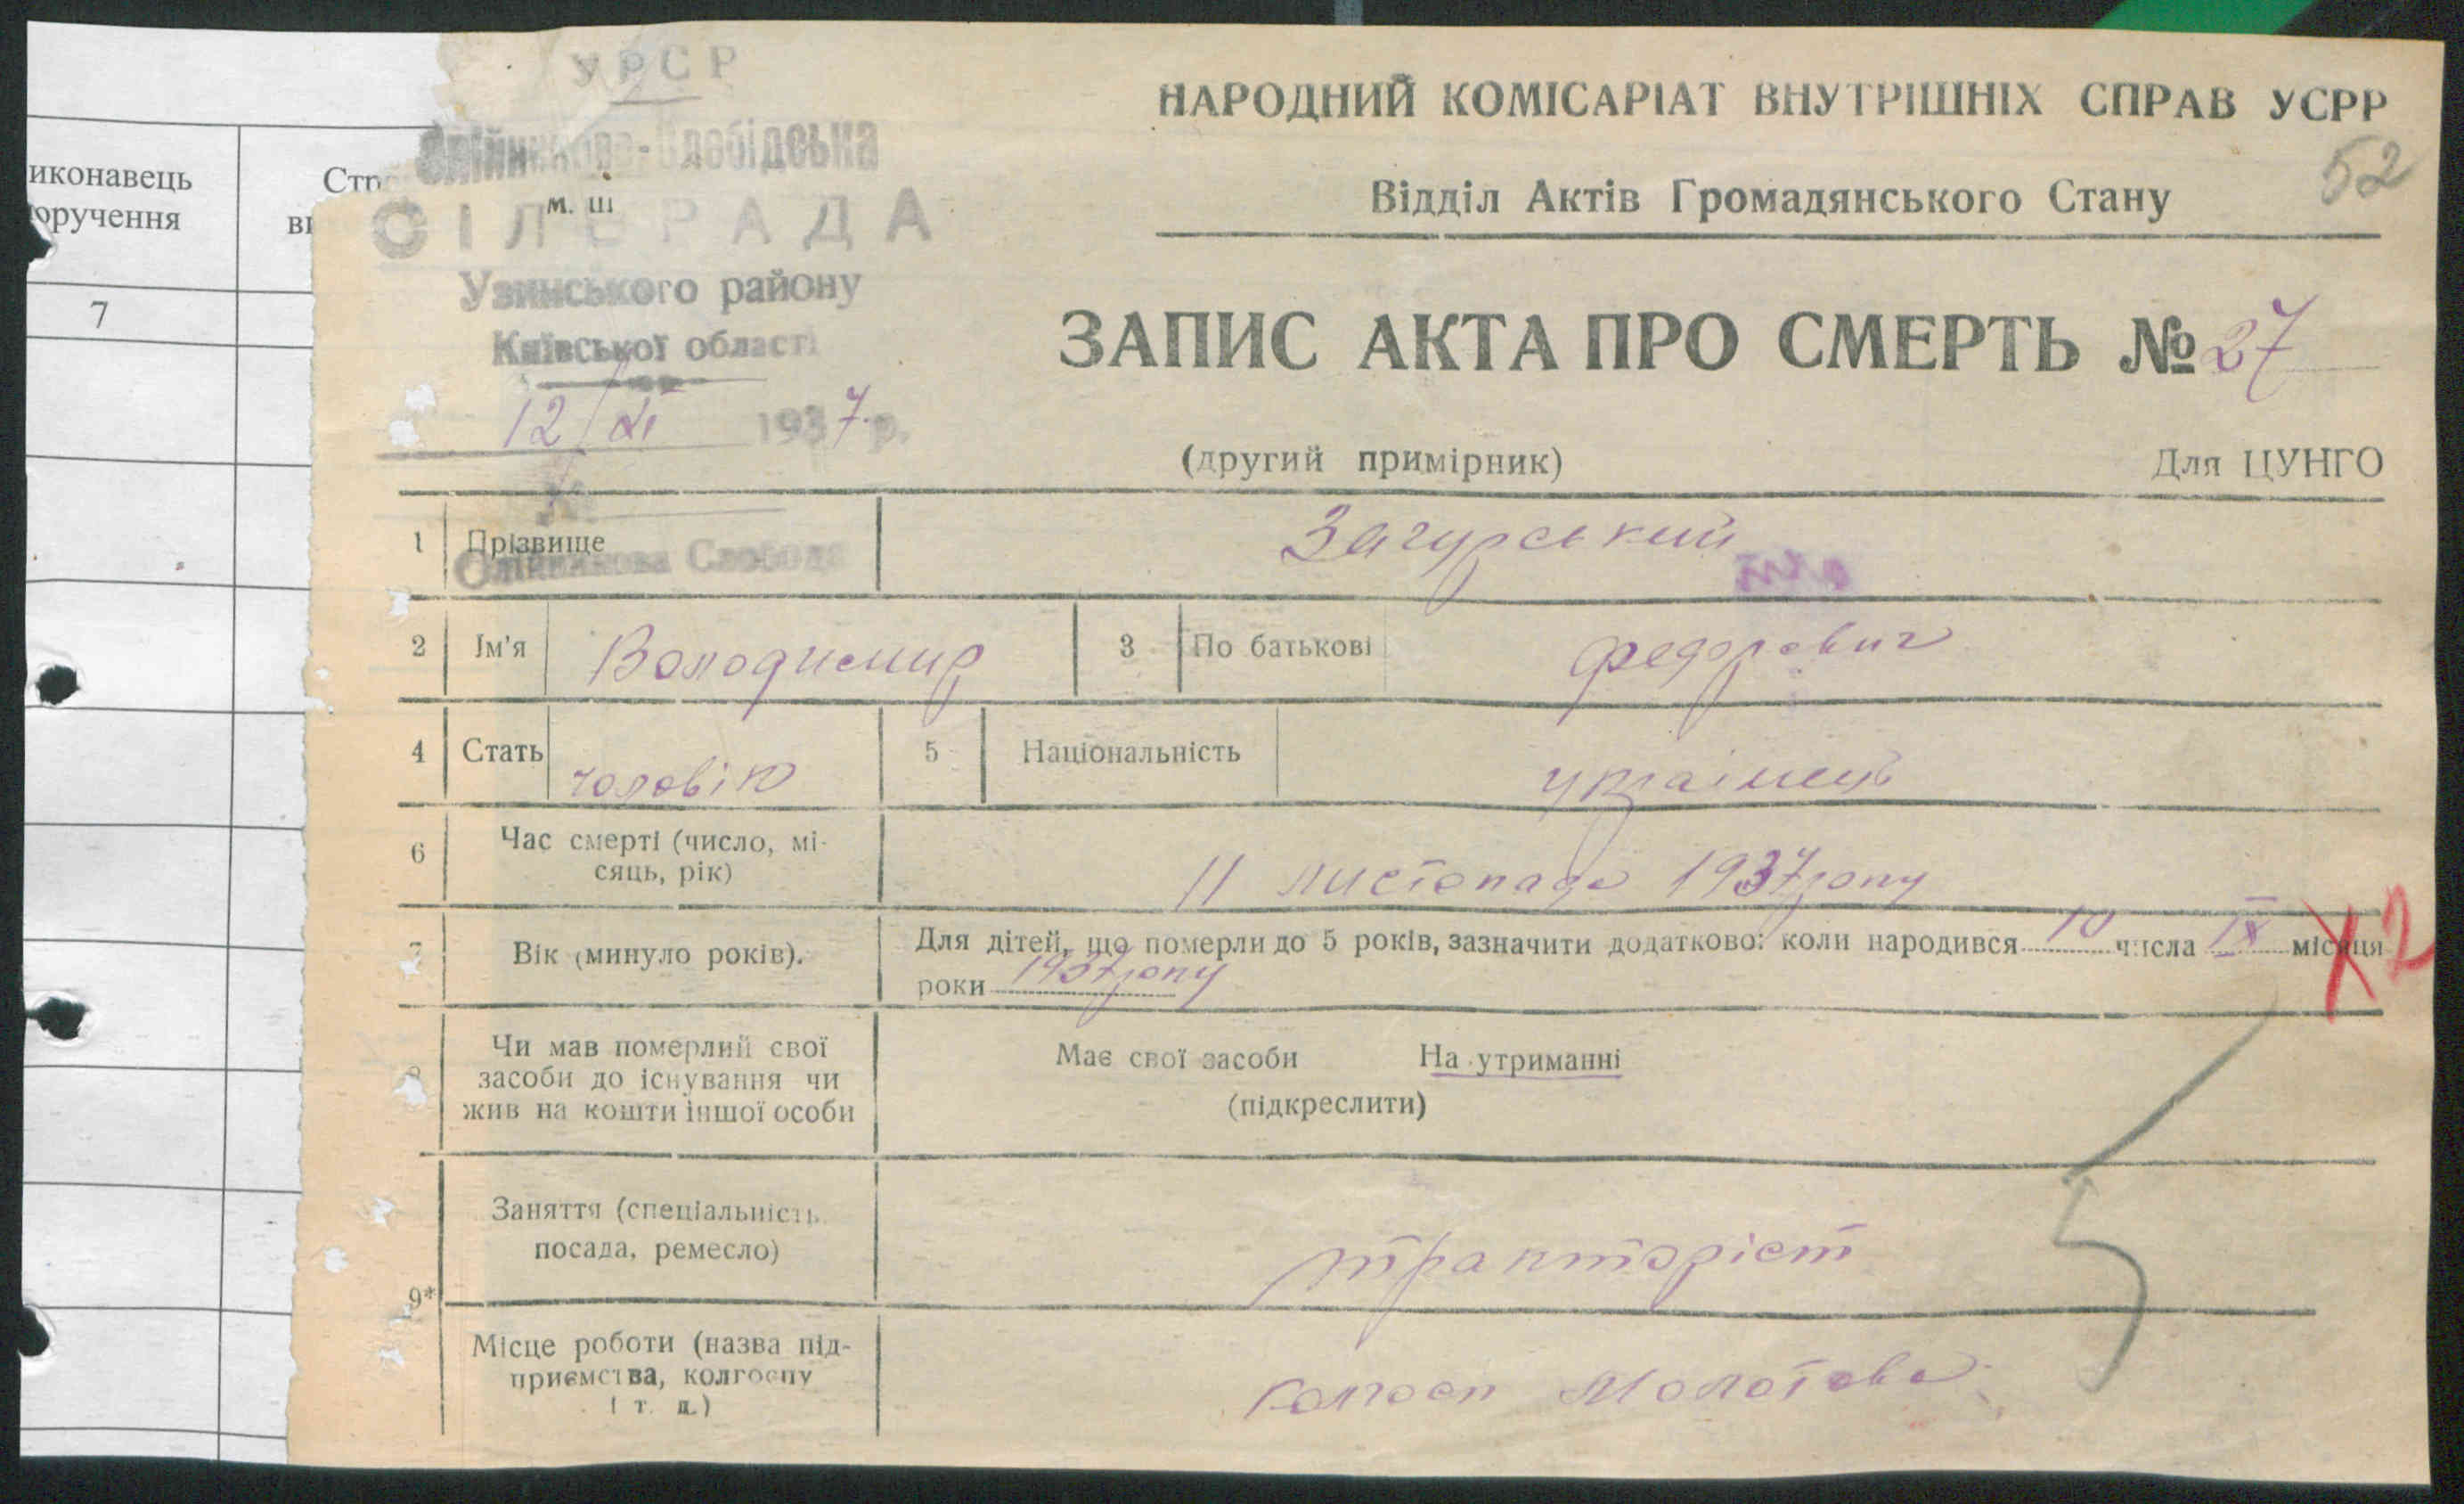 УРСР
Олійникова-Слобідська
м. ш
СІЛЬРАДА
Узинського району
Київської області
12/XI 1937 р.
№
Олійникова Слобода
НАРОДНИЙ КОМІСАРІАТ ВНУТРІШНІХ СПРАВ УСРР
52
Відділ Актів Громадянського Стану
ЗАПИС АКТА ПРО СМЕРТЬ № 27
(другий примірник) Для ЦУНГО
иконавець
оручення
Стр
ви
7
1 Прізвище Загурський
2 Ім'я Володимир 3 По батькові Федорович
4 Стать чоловік 5 Національність українець
6 Час смерті (число, мі-
сяць, рік)
11 листопада 1937 року
7 Вік (минуло років).
Для дітей, що померли до 5 років, зазначити додатково: коли народився 10 числа IX місяця
роки 1937 року
X2
Чи мав померлий свої
засоби до існування чи
жив на кошти іншої особи
Має свої засоби На утриманні
(підкреслити)
9*
Заняття (спеціальність,
посада, ремесло)
тракторіст
Місце роботи (назва під-
приємства, колгоспу
і т. д.)
колгосп Молотова
5